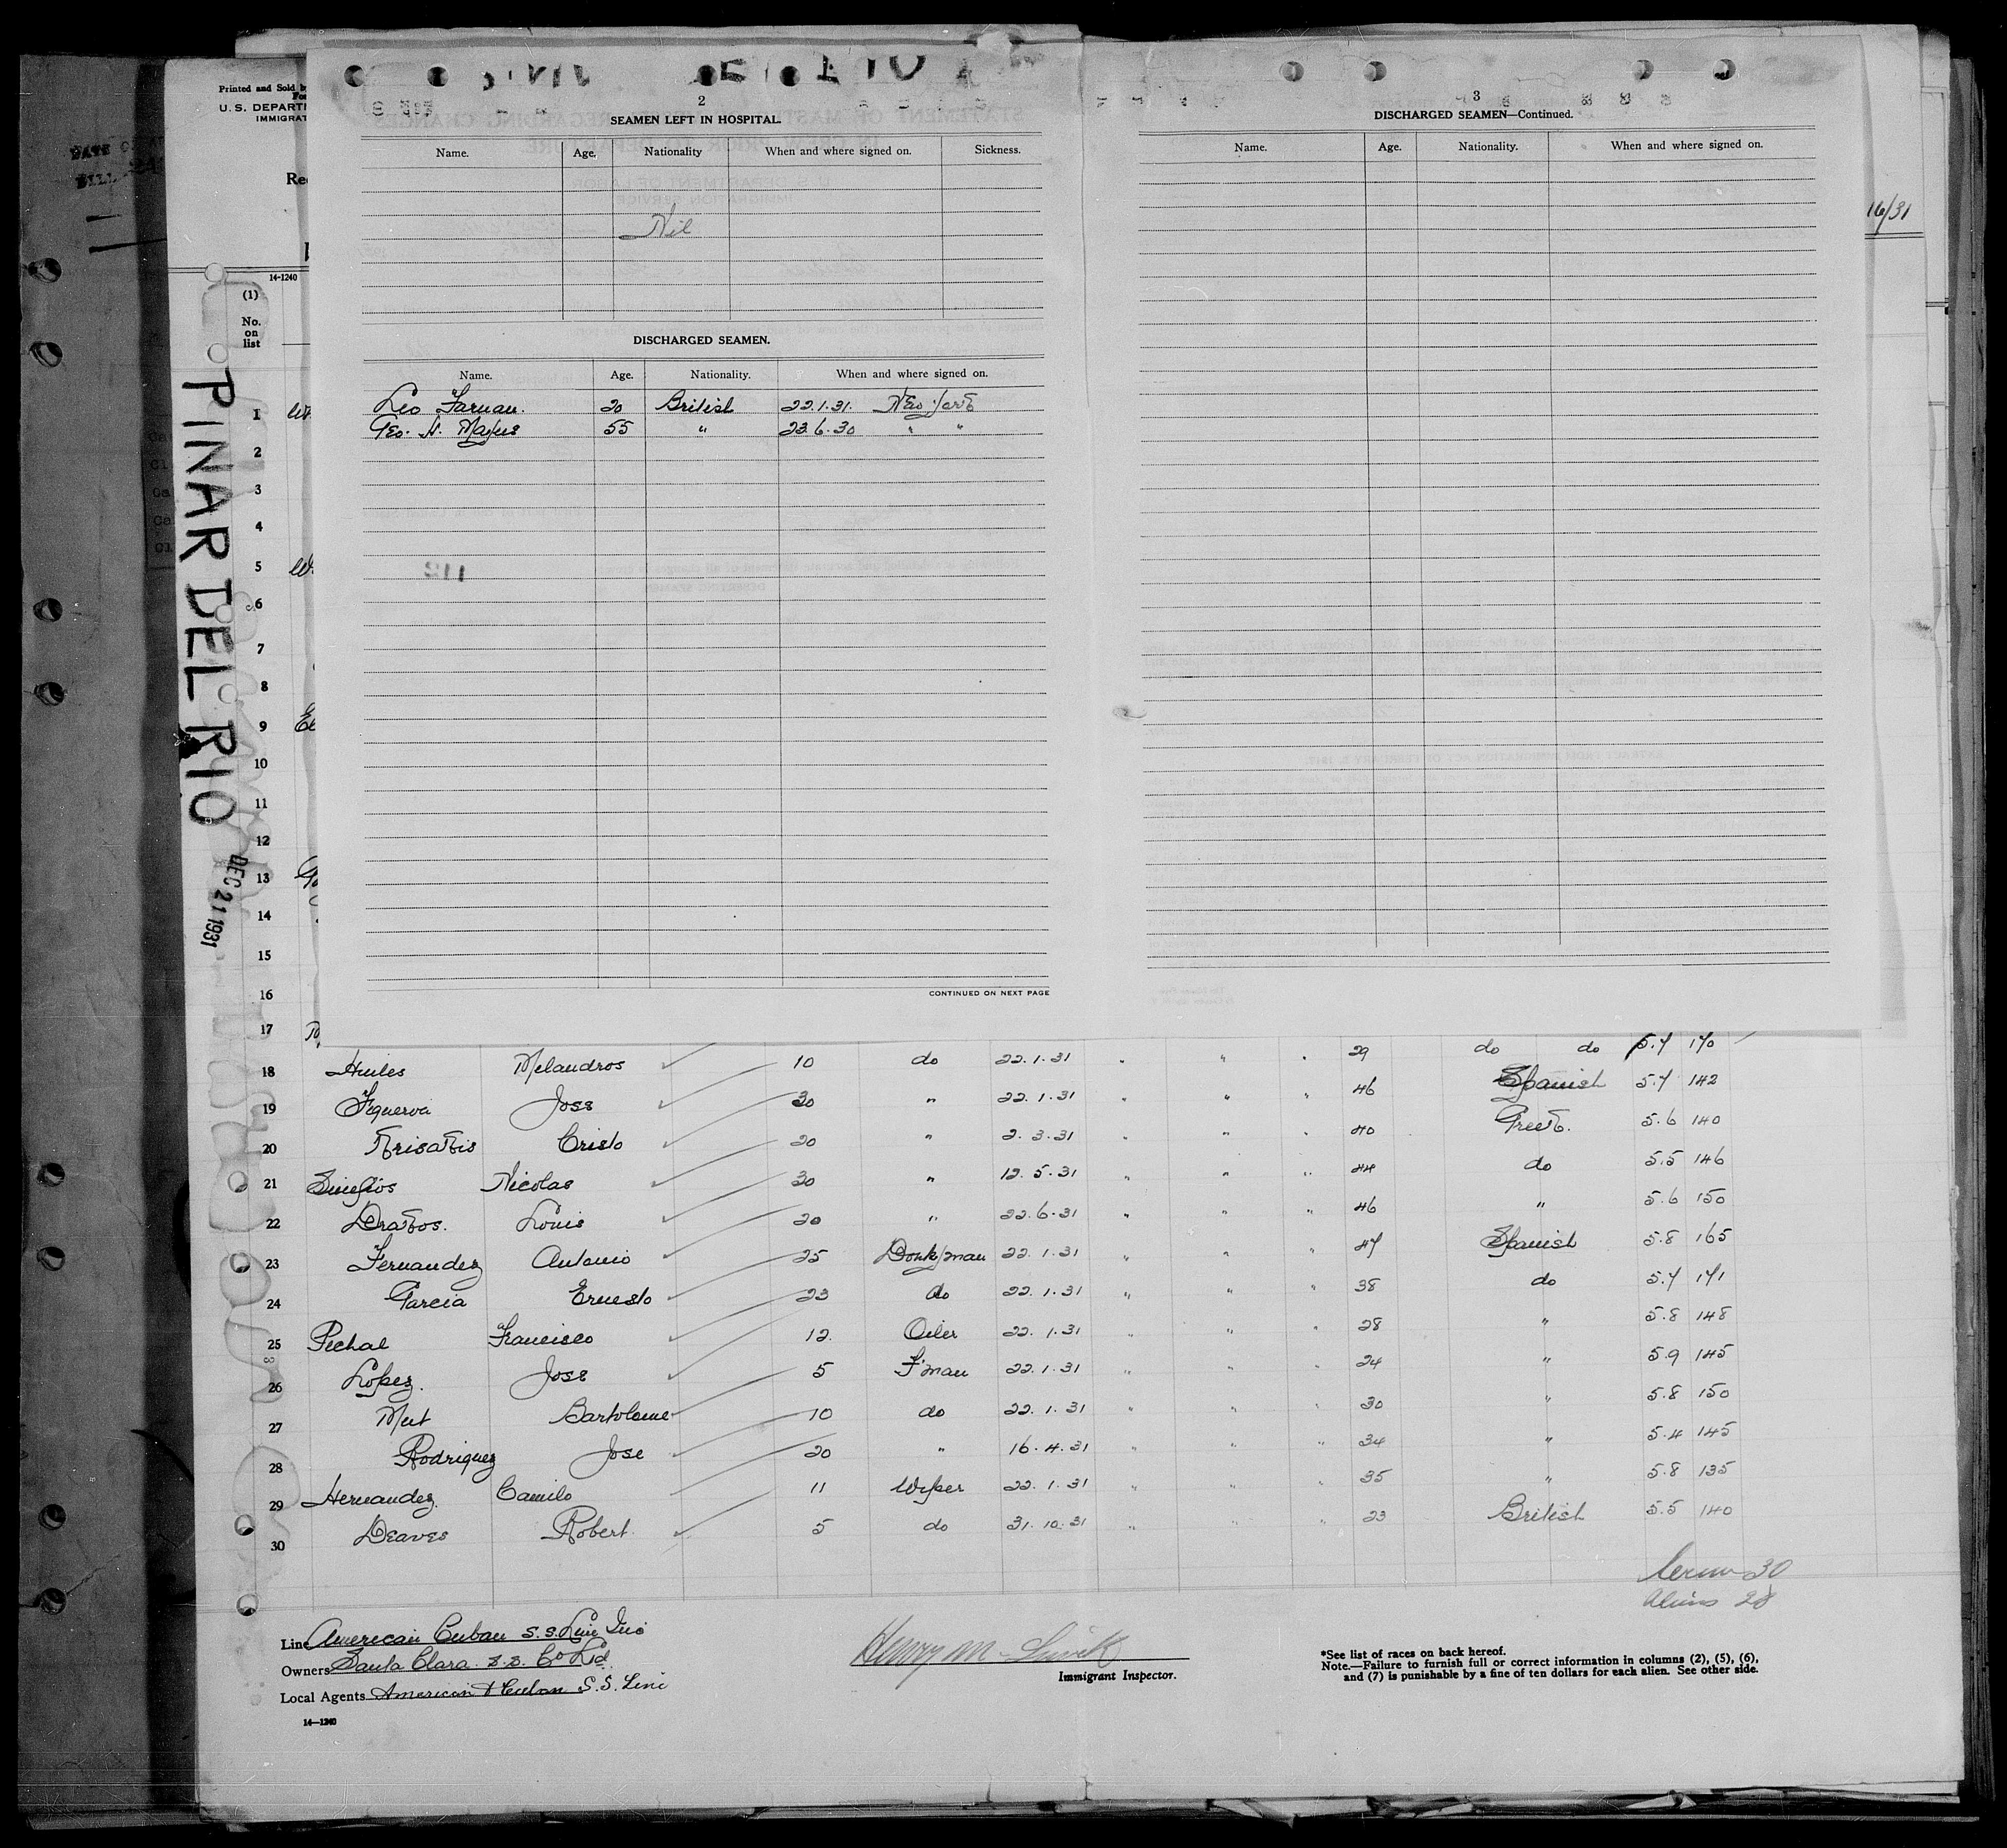 Printed and Sold b
U. S. DEPARTM
IMMIGRAT
14-1240
(1)
No.
on
list
PINAR DEL RIO
DEC 21 1931
2
SEAMEN LEFT IN HOSPITAL.
Name. Age. Nationality When and where signed on. Sickness.
Nil
DISCHARGED SEAMEN.
Name. Age. Nationality. When and where signed on.
Leo Farnan. 20 British 22.1.31. New York
Geo. H. 55 " 23.6.30 " "
CONTINUED ON NEXT PAGE
3
DISCHARGED SEAMEN—Continued.
Name. Age. Nationality. When and where signed on.
16/31
1
2
3
4
5
6
7
8
9
10
11
12
13
14
15
16
17
18 Melandros 10 do 22.1.31 " " " 29 do do 5.7 170
19 Figueroa Jose 30 " 22.1.31 " " " 46 Spanish 5.7 142
20 Krisakis Cristo 20 " 2.3.31 " " " 40 Greek. 5.6 140
21 Nicolas 30 " 12.5.31 " " " 44 do 5.5 146
22 Drakos. Louis 20 " 22.6.31 " " " 46 " 5.6 150
23 Fernandez Antonio 25 Donk/man 22.1.31 " " " 47 Spanish 5.8 165
24 Garcia Ernesto 23 do 22.1.31 " " " 38 do 5.7 171
25 Pechal Francisco 12. Oiler 22.1.31 " " " 28 " 5.8 148
26 Lopez. Jose 5 F'man 22.1.31 " " " 24 " 5.9 145
27 Mut Bartolome 10 do 22.1.31 " " " 30 " 5.8 150
28 Rodriquez Jose 20 " 16.4.31 " " " 34 " 5.4 145
29 Hernandez. Camilo 11 Wiper 22.1.31 " " " 35 " 5.8 135
30 Deaves Robert 5 do 31.10.31 " " " 23 British 5.5 140
30
Aliens 28
Line American Cuban S.S. Line Inc
Owners Santa Clara S.S. Co Ltd.
Local Agents American & Cuban S.S. Line
14—1240
Henry M.
Immigrant Inspector.
*See list of races on back hereof.
Note.—Failure to furnish full or correct information in columns (2), (5), (6),
and (7) is punishable by a fine of ten dollars for each alien. See other side.